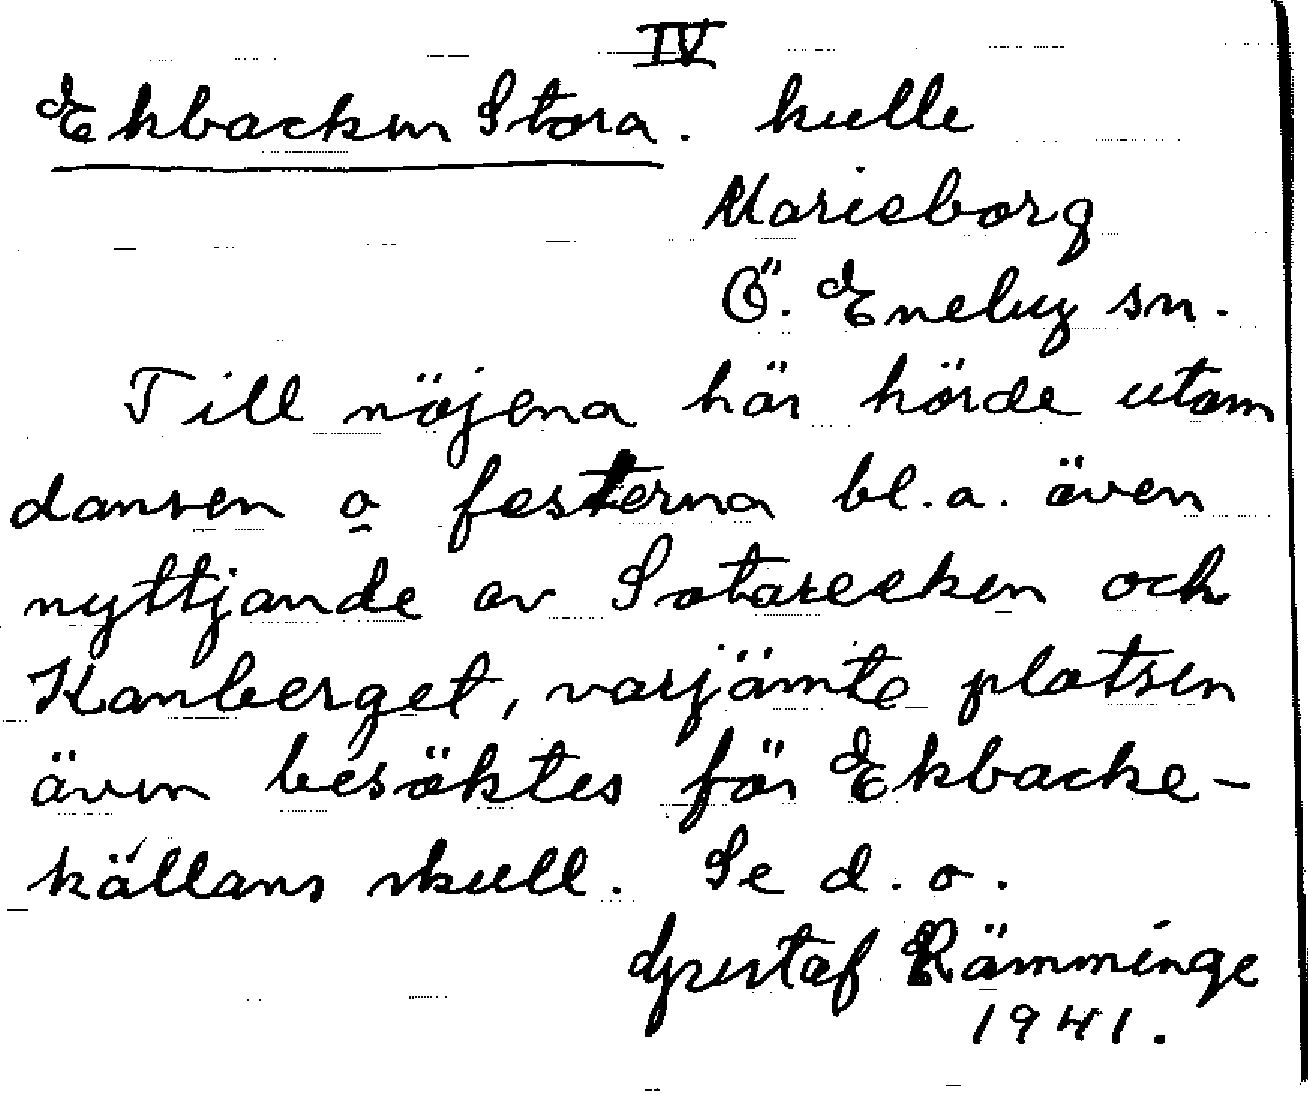 IV
Ekbacken Stora. kulle
Marieborg
Ö. Eneby sn.
Till nöjena här hörde utom
dansen o festerna bl.a. även
nyttjande av Sotareeken och
Kanberget, varjämte platsen
även besöktes för Ekbacke-
källans skull. Se d.o.
Gustaf Rämminge
1941.